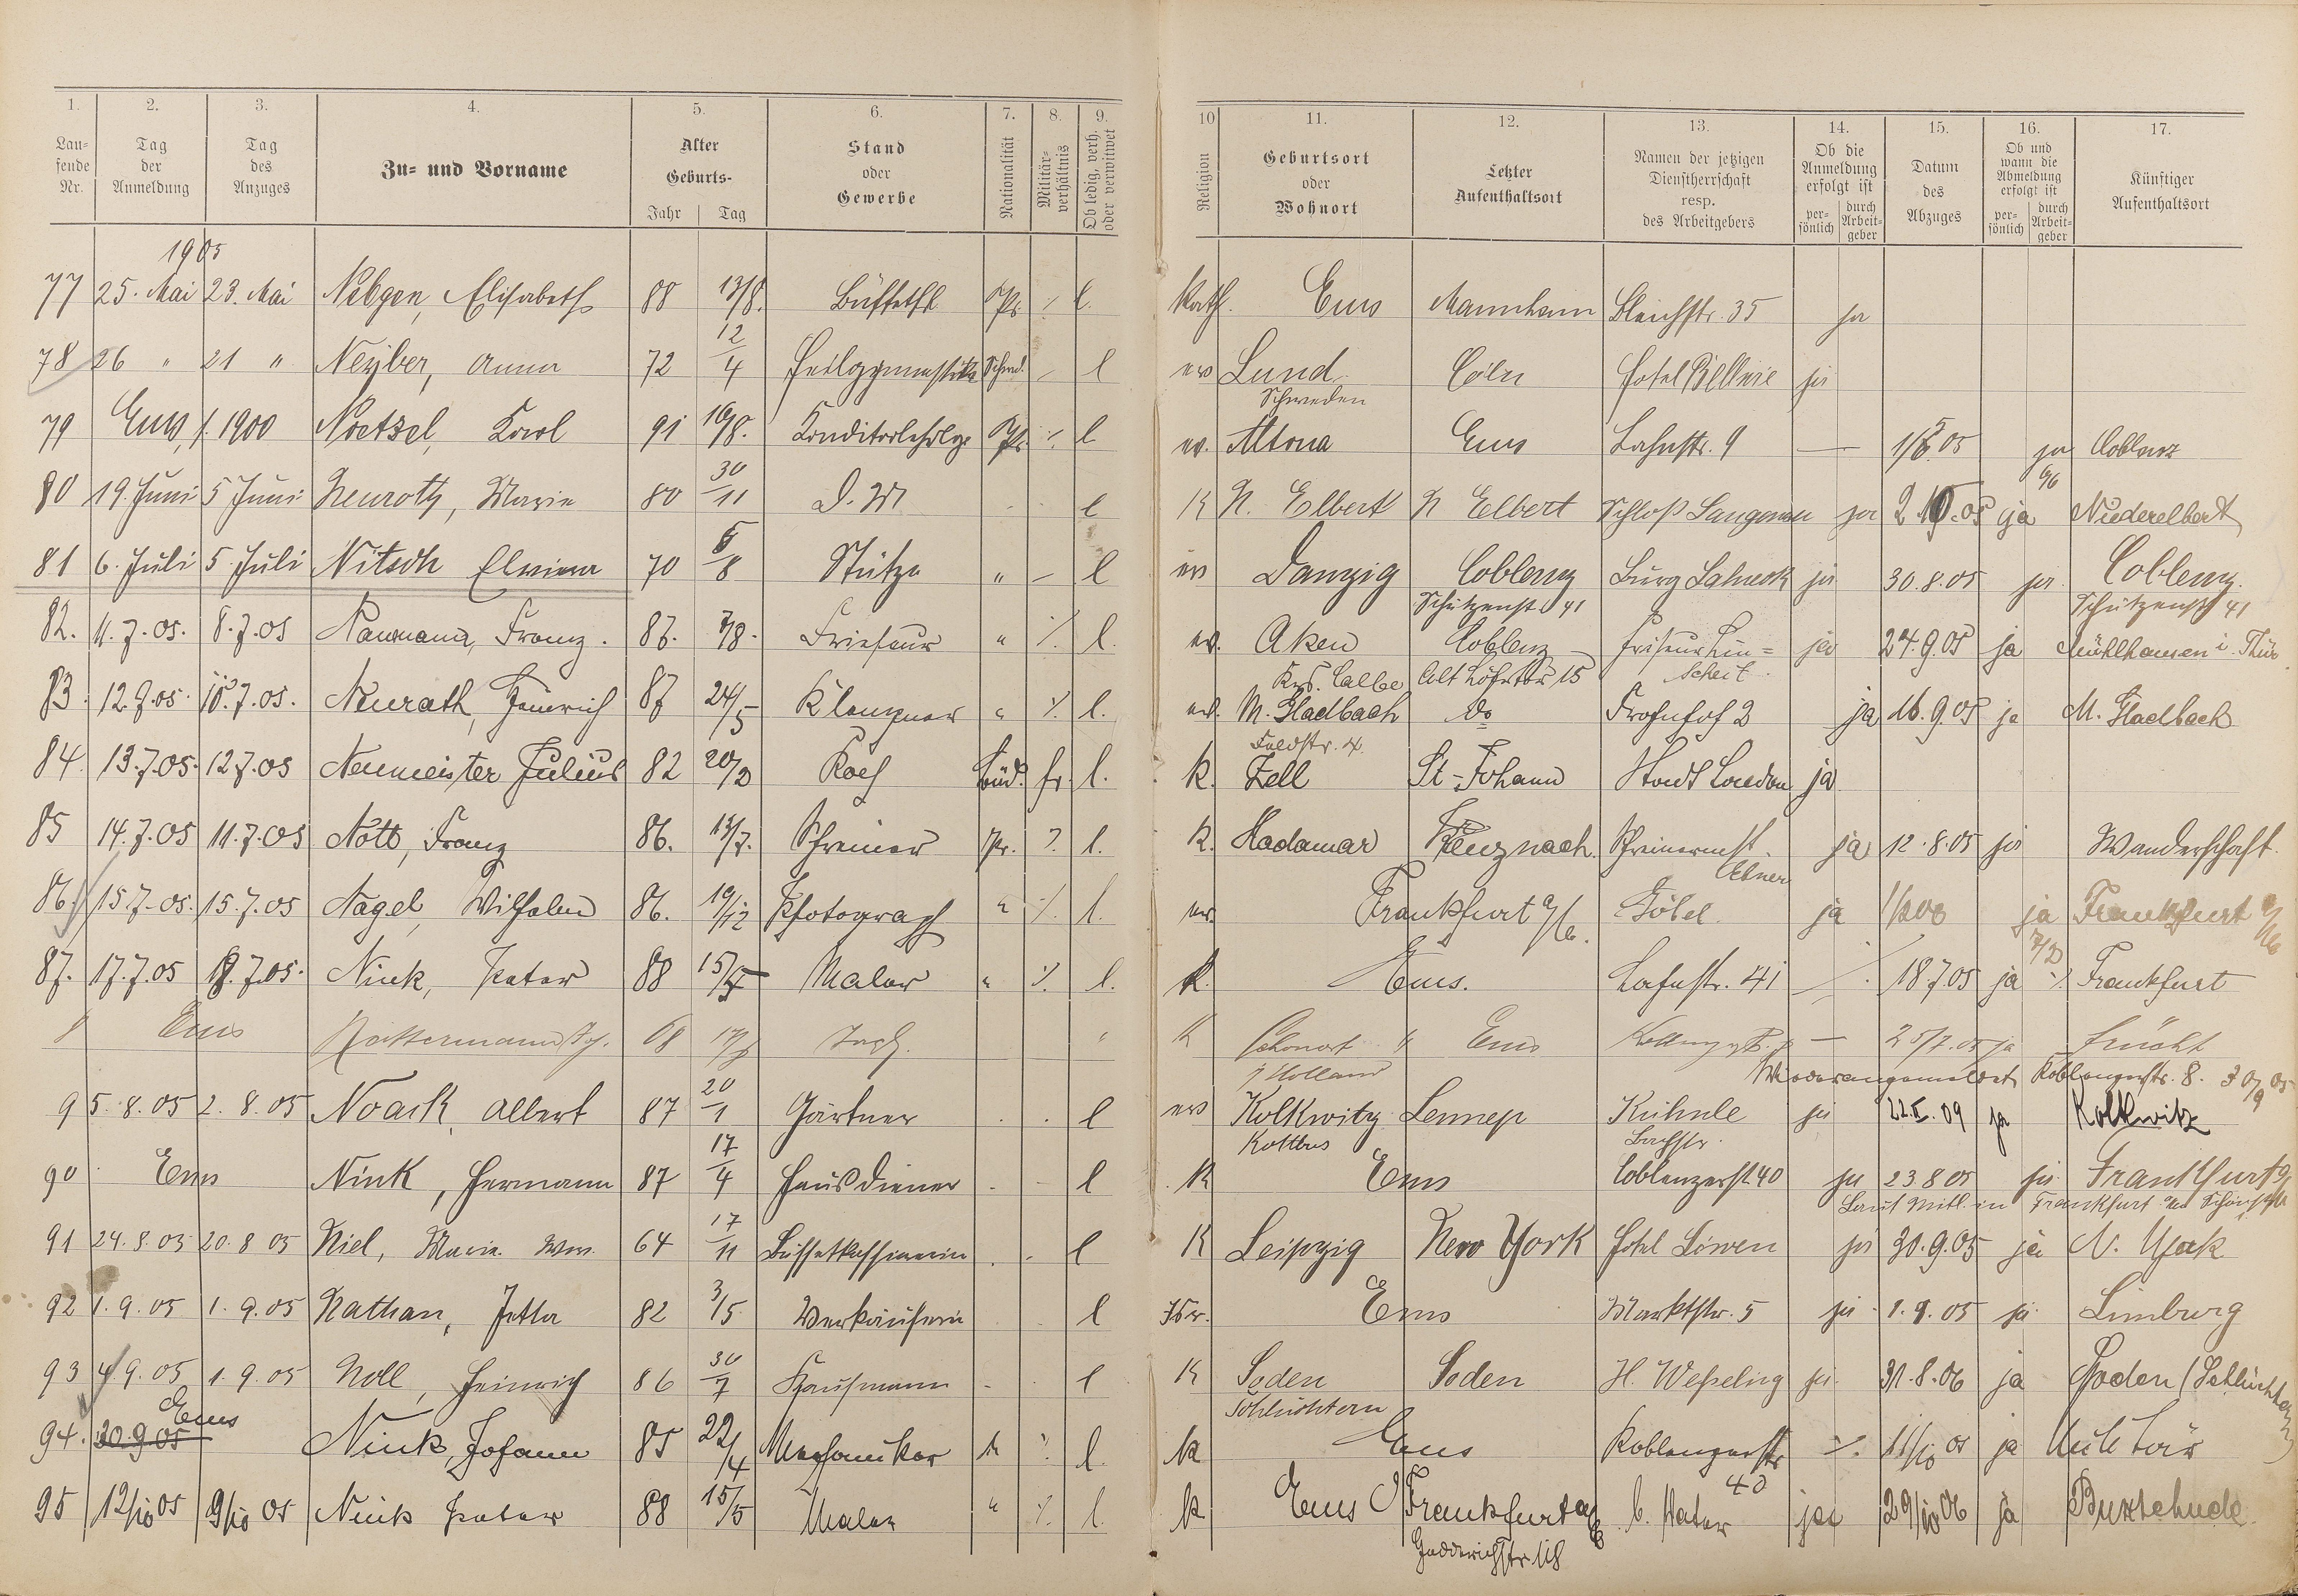 1. 2. 3. 4. 5. 6. 7. 8. 9. 10 11. 12. 13. 14. 15. 16. 17.
Lau-fende Nr. Tag der Anmeldung Tag des Anzuges Zu- und Vorname Alter Geburts- Jahr Tag Stand oder Gewerbe Nationalität Militär-verhältnis Ob ledig, verh. oder verwitwet Religion Geburtsort oder Wohnort Letzter Aufenthaltsort Namen der jetzigen Dienstherrschaft resp. des Arbeitgebers Ob die Anmeldung erfolgt ist per-sönlich durch Arbeit-geber Datum des Abzuges Ob und wann die Abmeldung erfolgt ist per-sönlich durch Arbeit-geber Künftiger Aufenthaltsort
1905
77 25. Mai 23. Mai Nebgen, Elisabeth 88 13/8. Pr. l. Kath. Ems Mannheim Bleichstr. 35 ja
78 26 " 21 " Neyber, Anna 72 12/4 Schwed. l ev Lund Cöln Hotel ja
Schweden
79 Ems, 1900 Noetzel, Karl 91 Konditorlehrlg. Pr. l ev. Altona Ems Lahnstr. 9 — 05 ja Coblenz
80 19. Juni 5 Juni Neuroth, Marie 80 30/11 D. M l K N. Elbert N Elbert Schloß Langenau ja ja Niederelbert
81 6. Juli 5. Juli Nitsch Elwiena 70 Stütze " — l ev Danzig Coblenz Burg Lahneck ja 30.8.05 ja Coblenz.
Schützenst 41 Schützenst 41
82. 11.7.05. 8.7.05 Naumann, Franz. 86. 7/8. Friseur " % l. ev. Aken Coblenz Friseur Lin= ja 24.9.05 ja Mühlhausen i. Thür
Krs. Calbe Alt Löhrtor 15 scheit.
83. 12.7.05. 10.7.05. Neurath, Heinrich 87 24/5 Klempner " % l. ev. M. Gladbach do Frohnhof 2 ja 16.9.05 ja M. Gladbach
Feldstr. 4.
84. 13.7.05. 12.7.05 Neumeister Julius 82 20/2 Koch Bad. fr. l. k. Zell St-Johann Stadt London ja
85 14.7.05 11.7.05 Nott, Franz 86. 13/7. Schreiner Pr. % l. k. Hadamar Kreuznach. Schreinermst. ja 12.8.05 ja Wanderschaft.
Ebner
86. 15.7.05. 15.7.05 Nagel, Wilhelm 86. 19/12 Photograph " % l. ev. Frankfurt a/M. Göbel ja ja Frankfurt a/M
87. 17.7.05 7.05. Nink, Peter 88 15/5 Maler " % l. k. Ems. Lahnstr. 41 18.7.05 ja % Frankfurt
8 Ems 68 " K Ems — 25/7.05 ja Frücht
Holland Wiederangemeldet Koblenzerstr. 8. 30/9 05
9 5.8.05 2.8.05 Noack, Albert 87 20/1 Gärtner l ev Kolkwitz Lennep Kühnle ja 09 ja Kolkwitz
Kottbus Bachstr.
90 Ems Nink, Hermann 87 17/4 Hausdiener l K Ems Coblenzerst. 40 ja 23 8 05 ja Frankfurt a/M
Laut Mitl. in Frankfurt
91 24.8.05 20.8 05 Niel, Maria Ww. 64 17/11 Büffettkassiererin l K Leipzig New York Hotel Löwen ja 30.9.05 ja N. York
92 1.9.05 1.9.05 Nathan, Jetta 82 3/5 Verkäuferin l Isr. Ems Marktstr. 5 ja 1.9.05 ja Limburg
93 4.9.05 1.9.05 Noll, Heinrich 86 30/7 Kaufmann l K Soden Soden H. Weßeling ja 31.8.06 ja Soden (Schlüchtern)
Schlüchtern
Ems
94. 30.9.05 Nink, Johann 85 22/4 Mechaniker % l. k Ems Koblenzerstr 40 %. 11/10 05 ja Militär
95 12/10 05 9/10 05 Nink Peter 88 15/5 Maler " % l. k Ems Frankfurt a/M b. Vater ja 29/10 06 ja Buxtehude